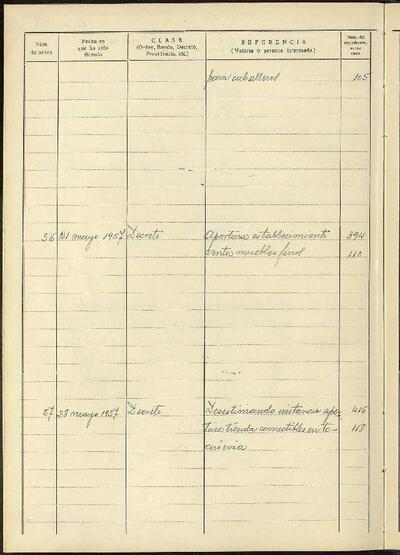 Núm. de orden
Fecha en que ha sido dictado
CLASE
(Orden, Bando, Decreto, Providencia, etc.)
REFERENCIA
(Materia o persona interesada)
Núm. del expediente, en su caso
para caballeros 105
56 21 mayo 1957 Decreto Apertura establecimiento 394
venta muebles finos 110
57 28 mayo 1957 Decreto Desestimando instancia aper- 415
tura tienda comestibles en 118